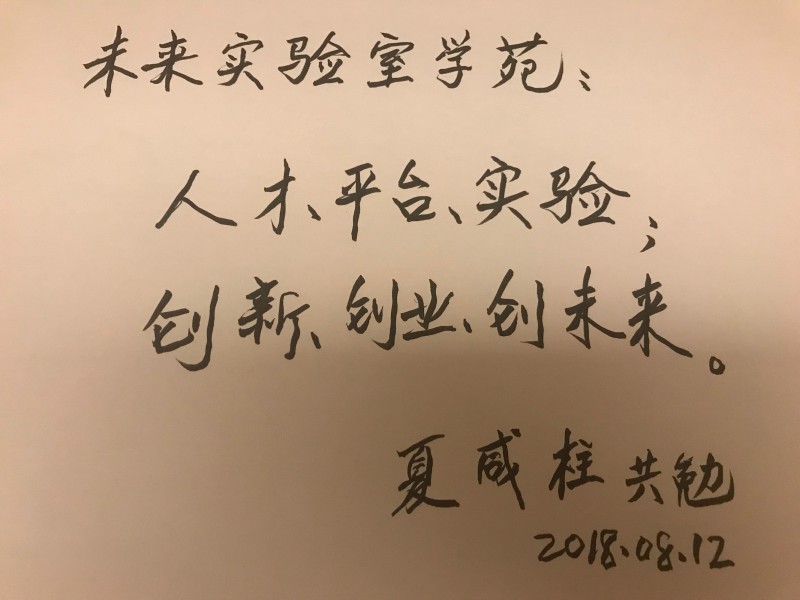 未来实验室学苑：
人才、平台、实验；
创新、创业、创未来。
夏咸柱 共勉
2018.08.12